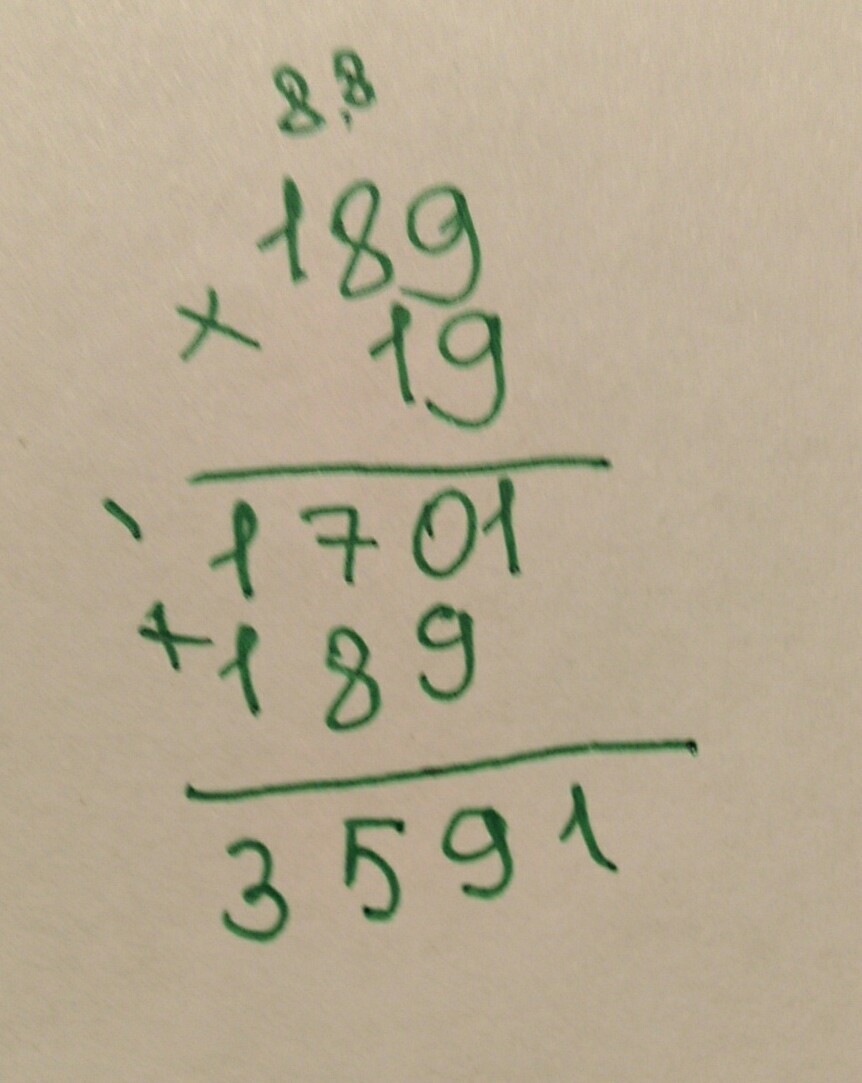 8 8
189
× 19
1701
+ 189
3591